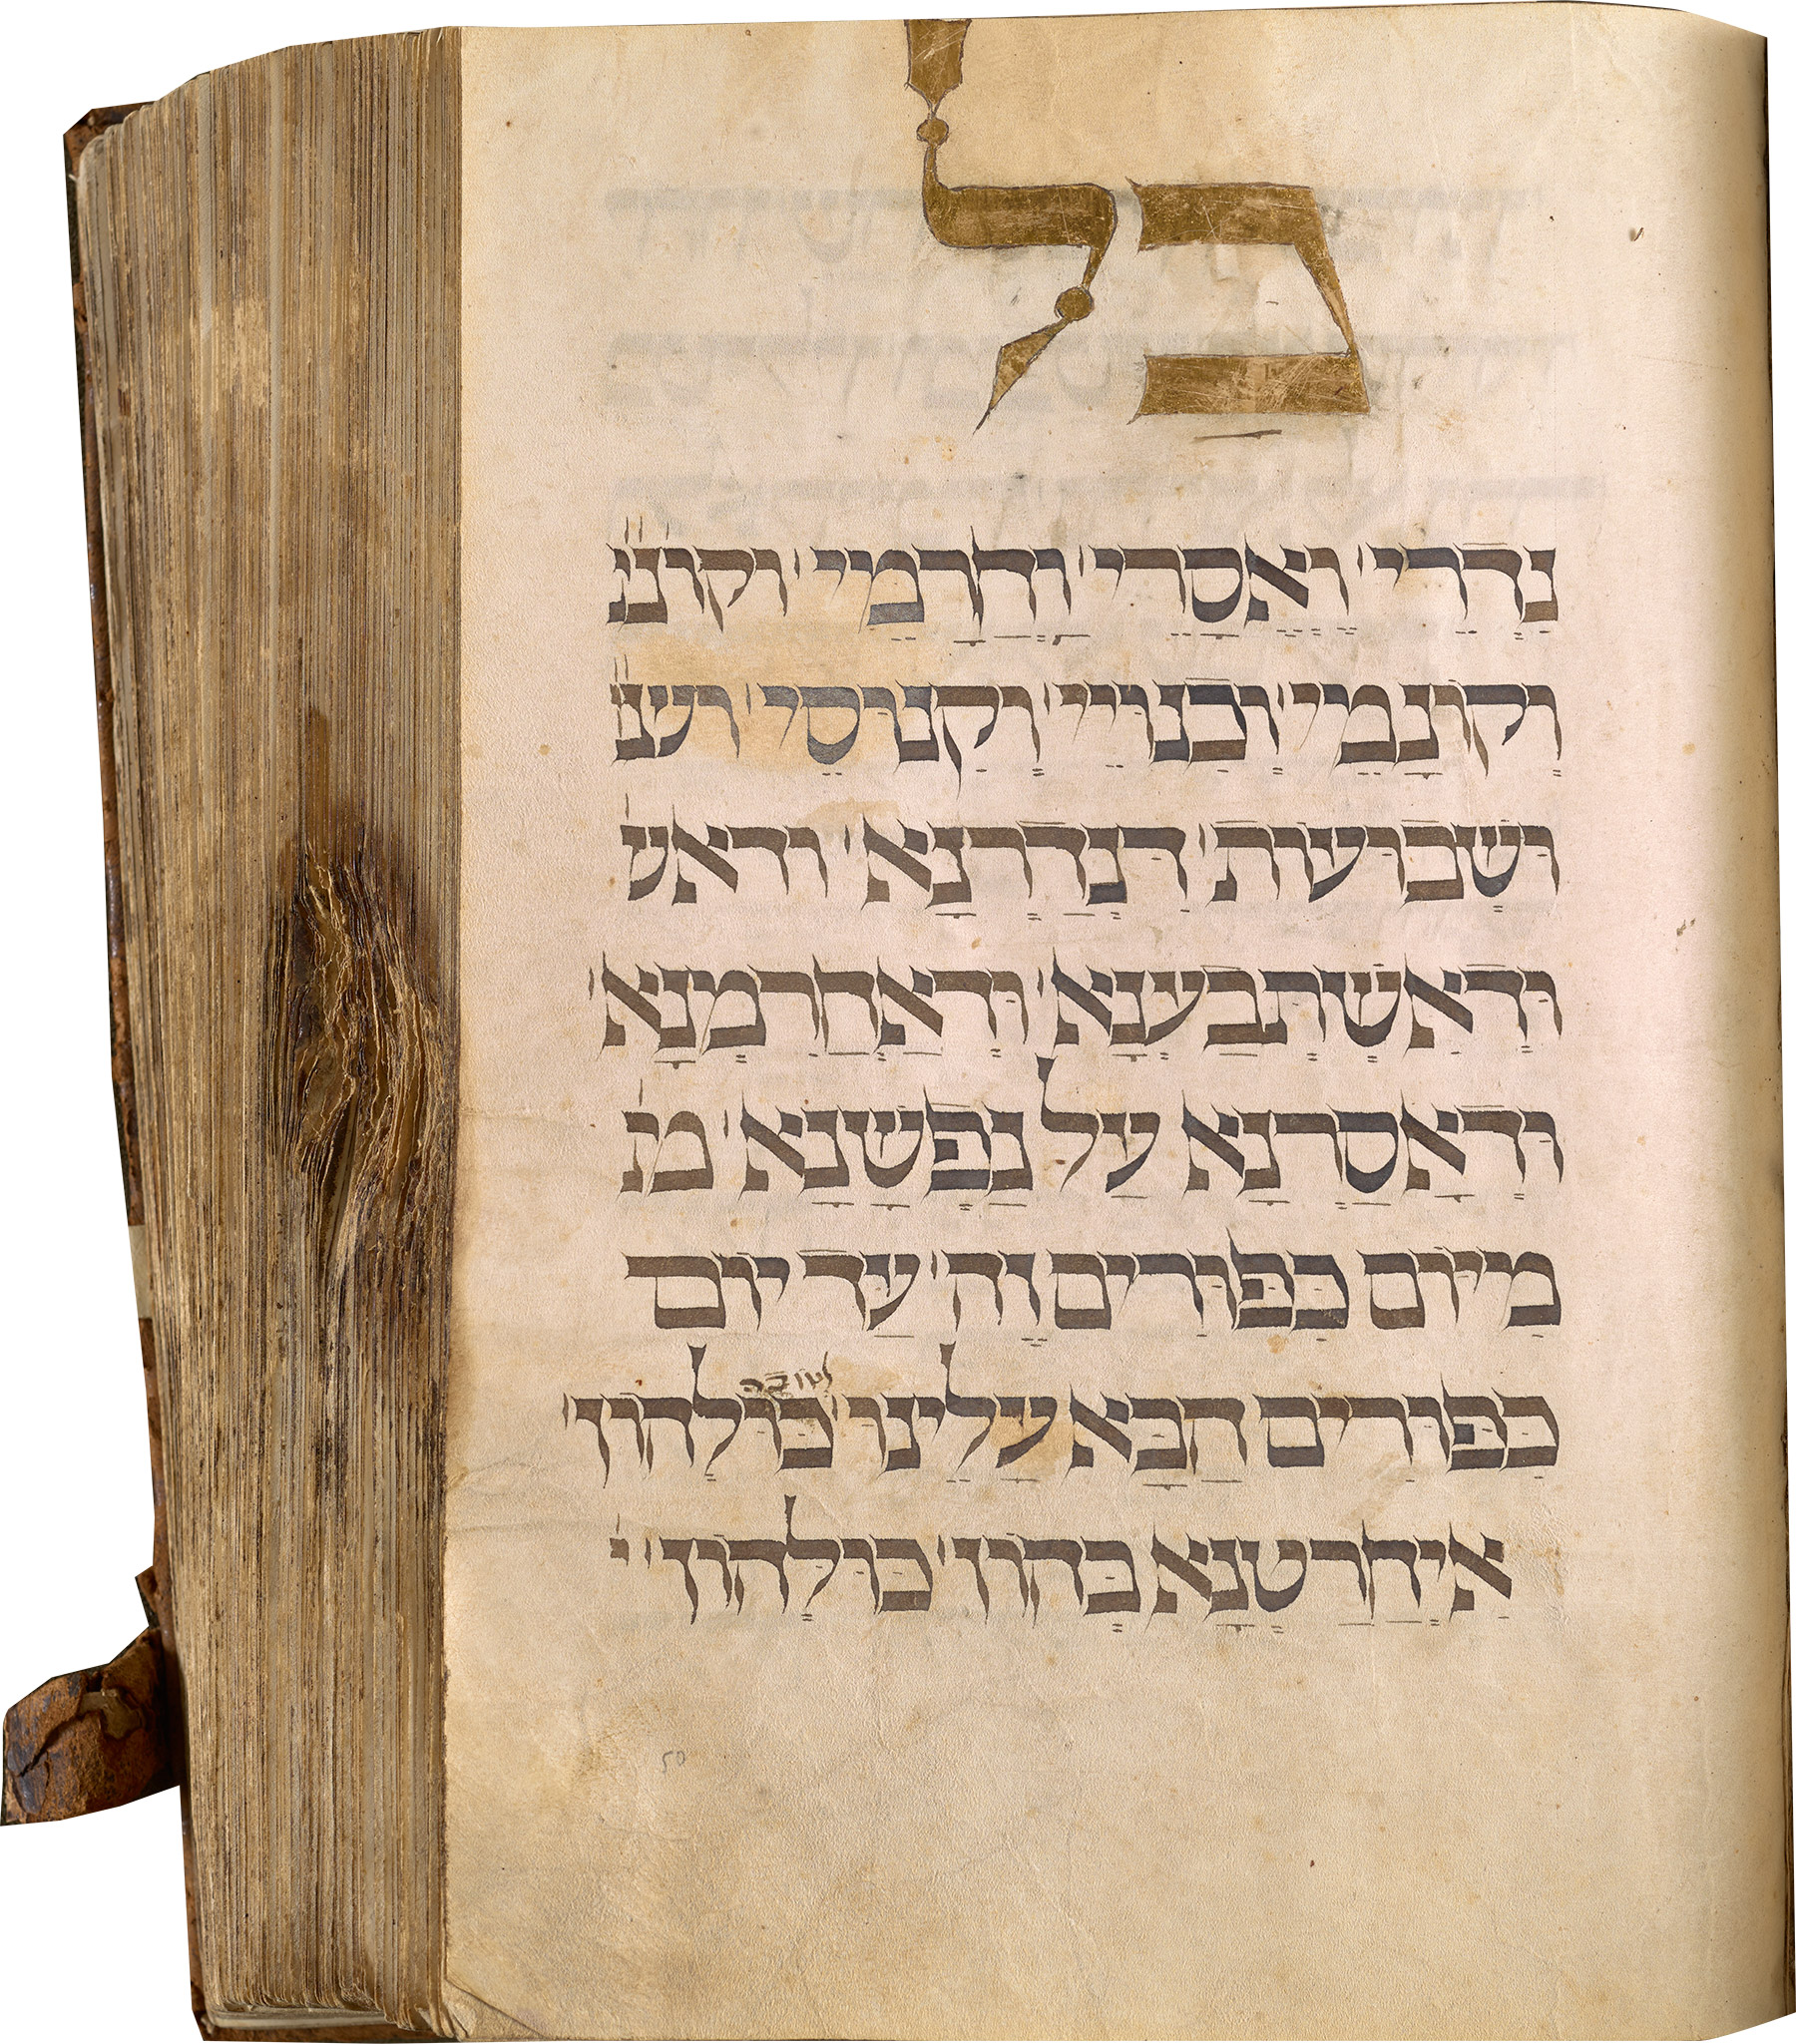 כָּל
נִדְרֵי' וֶאֱסָרֵי' וַחֲרָמֵי' וקונׄנׄ
וְקוֹנָמֵי' וְכִנּוּיֵי' וְקִנּוּסֵי' ועני
וּשְׁבוּעוֹת' דִּנְדַרְנָא' ודאש
וּדְאִשְׁתְּבַעְנָא' וּדְאַחֲרִמְנָא'
וּדְאָסַרְנָא עַל נַפְשָׁנָא' מ
מִיּוֹם כִּפּוּרִים זֶה' עַד יוֹם
כִּפּוּרִים הַבָּא עָלֵינוּ' כּוּלְּהוֹן'
אִיחֲרַטְנָא בְּהוֹן' כּוּלְּהוֹן' י
50